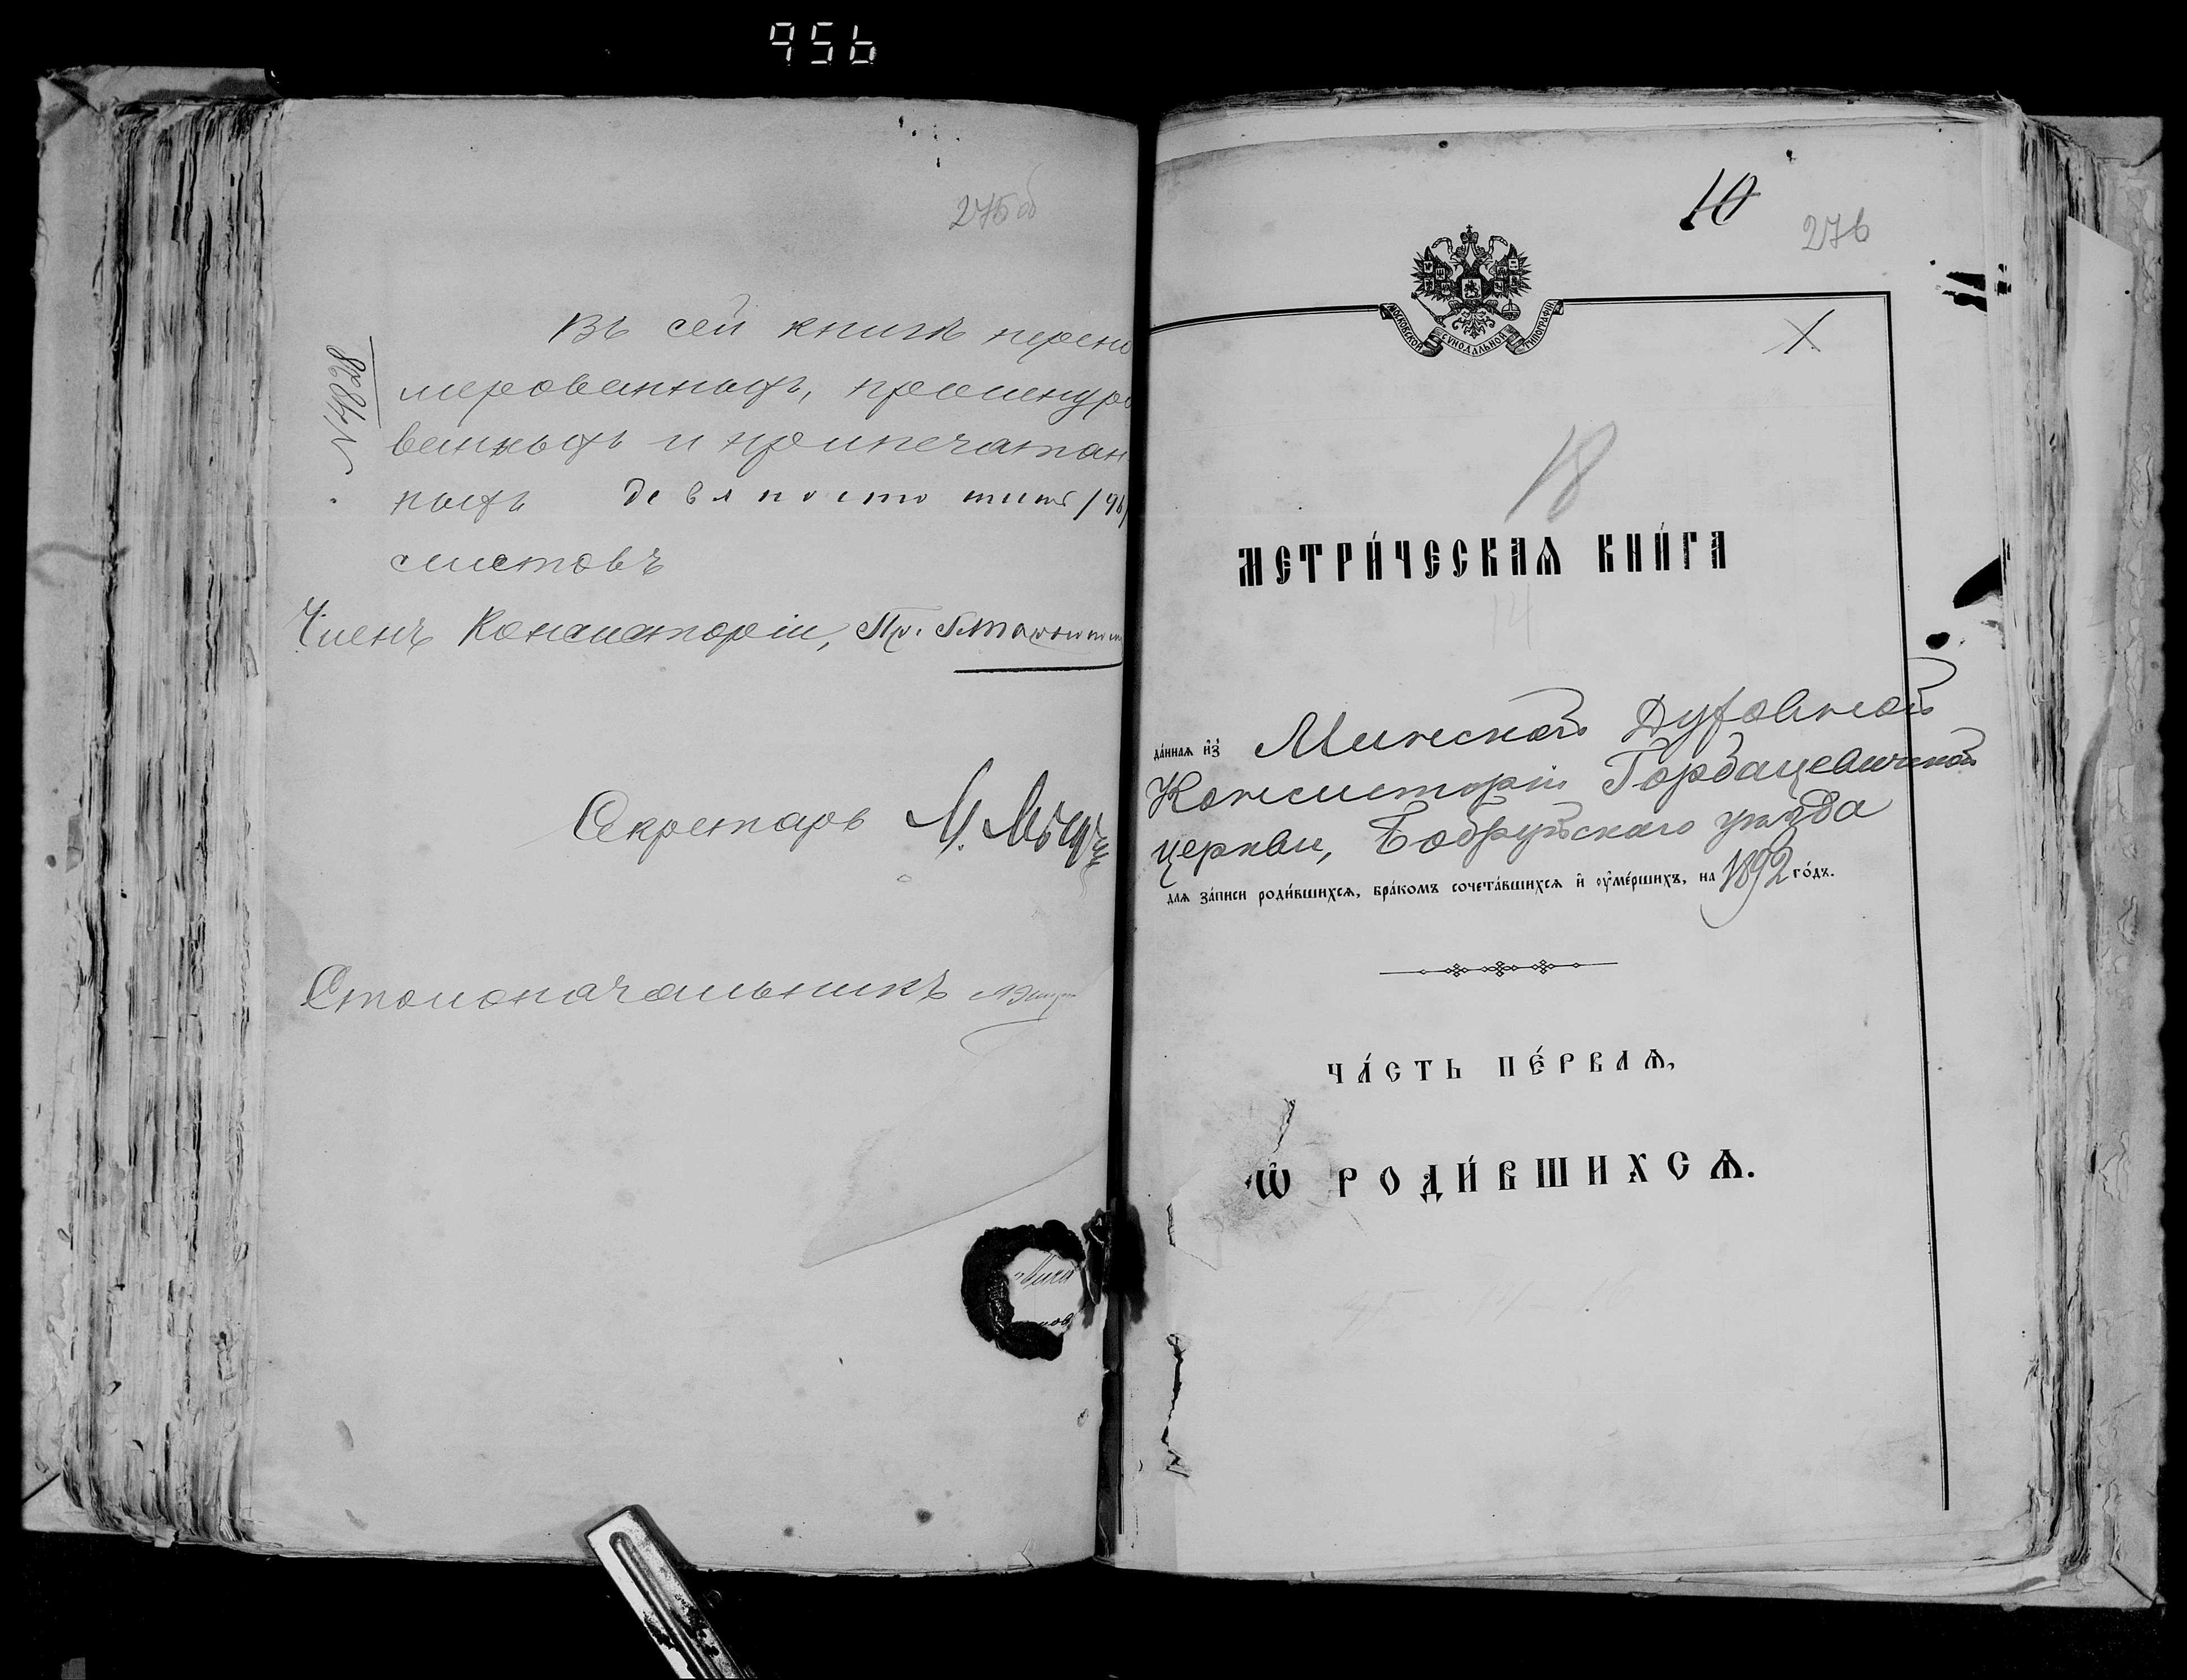 956
275 об
Въ сей книгѣ перено
мерованныхъ, прошнуро
ванныхъ и припечатан
ныхъ девяносто
листовъ
№ 4828
Членъ Консисторіи, Пр.
Секретарь М.
Столоначальникъ
10
276
МОСКОВСКОЙ СѴНОДАЛЬНОЙ ТИПОГРАФІИ
X
18
МЕТРИ́ЧЕСКАѦ КНИ́ГА
14
да́ннаѧ и҆з̾ Минской Духовной
Консисторіи Горбацевичской
церкви, Бобруйскаго уѣзда
длѧ за́писи роди́вшихсѧ, бра́комъ сочета́вшихсѧ и҆ ᲂу҆ме́ршихъ, на 1892 го́дъ.
ЧА́СТЬ ПЕ́РВАѦ,
Ѡ҆ РОДИ́ВШИХСѦ.